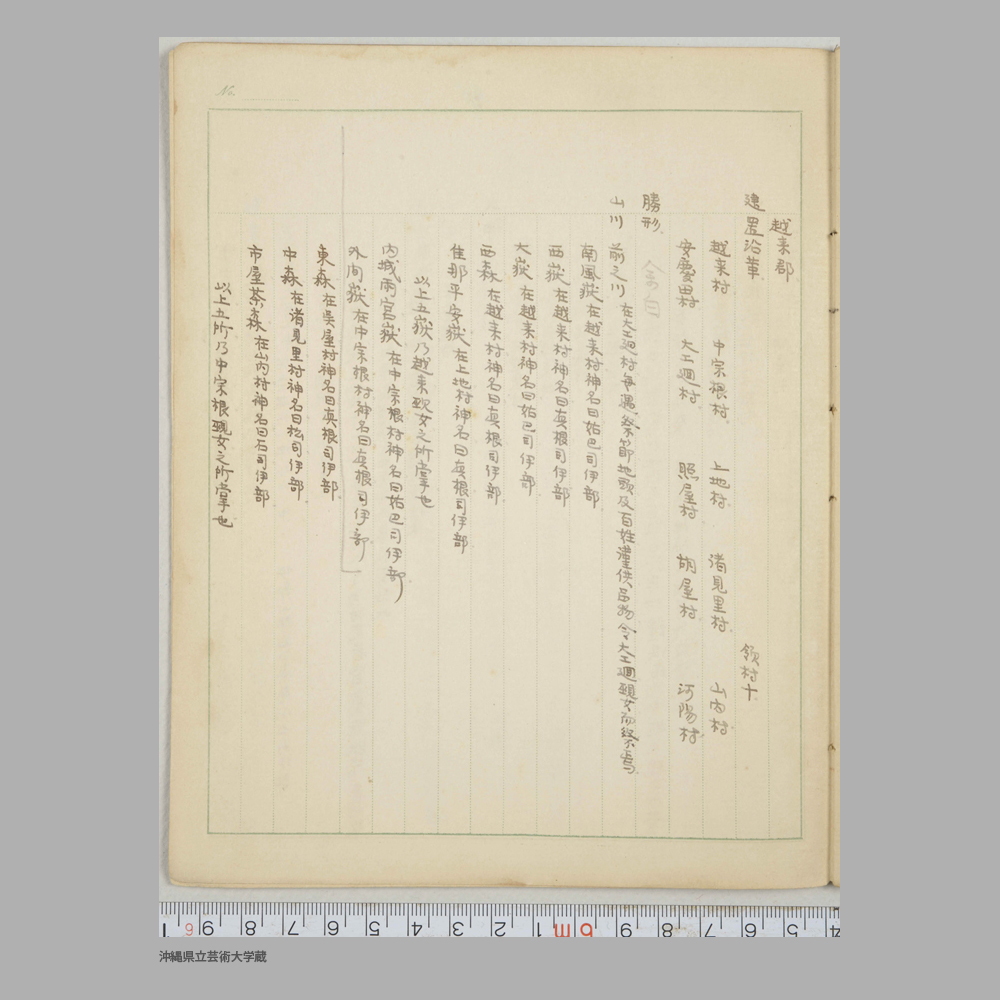 No.
越来郡
建置沿革　領村十
越来村　中宗根村　上地村　渚見里村　山内村
安慶田村　大工廻村　照屋村　胡屋村　河陽村
勝形　余白
山川　前之川　在大工廻村毎遇祭節地頭及百姓謹供品物令大工廻頭女而祭焉
南風嶽在越来村神名曰姑巴司伊部
西嶽在越来村神名曰真根司伊部
大嶽在越来村神名曰姑巴司伊部
西森在越来村神名曰真根司伊部
佳那平安嶽在上地村神名曰真根司伊部
以上五嶽乃越来覡女之所掌也
内城雨宮嶽在中宗根村神名曰姑巴司伊部
外間嶽在中宗根村神名曰真根司伊部
東森在呉屋村神名曰真根司伊部
中森在渚見里村神名曰松司伊部
市屋茶森在山内村神名曰石司伊部
以上五所乃中宗根覡女之所掌也
4 5 6 7 8 9 1m 1 2 3 4 5 6 7 8 9 6
沖縄県立芸術大学蔵